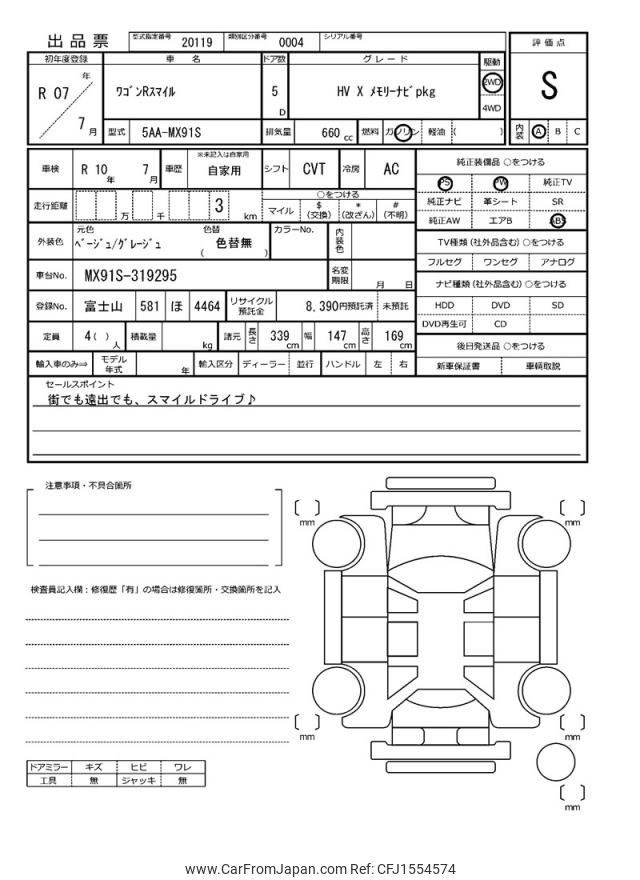 出品票 型式指定番号 20119 類別区分番号 0004 シリアル番号
初年度登録 車名 ドア数 グレード 駆動 評価点
R 07 年 7 月 ワゴンRスマイル 5 D HV X メモリーナビpkg 2WD 4WD S
型式 5AA-MX91S 排気量 660 cc 燃料 ガソリン 軽油 ( ) 内装 A B C
車検 R 10 年 7 月 車歴 ※未記入は自家用 自家用 シフト CVT 冷房 AC 純正装備品 ○をつける
PS PW 純正TV
走行距離 万 千 3 km ○をつける 純正ナビ 革シート SR
マイル $ (交換) * (改ざん) # (不明) 純正AW エアB ABS
外装色 元色 ベージュ/グレージュ 色替 ( 色替無 ) カラーNo. 内装色 TV種類 (社外品含む) ○をつける
フルセグ ワンセグ アナログ
車台No. MX91S-319295 名変期限 月 日 ナビ種類 (社外品含む) ○をつける
登録No. 富士山 581 ほ 4464 リサイクル預託金 8,390円預託済 未預託 HDD DVD SD
DVD再生可 CD
定員 4( ) 人 積載量 kg 諸元 長さ 339 cm 幅 147 cm 高さ 169 cm 後日発送品 ○をつける
輸入車のみ⇒ モデル年式 年 輸入区分 ディーラー 並行 ハンドル 左 右 新車保証書 車輌取説
セールスポイント
街でも遠出でも、スマイルドライブ♪
注意事項・不具合箇所
検査員記入欄：修復歴「有」の場合は修復箇所・交換箇所を記入
mm
mm
mm
mm
mm
ドアミラー キズ ヒビ ワレ
工具 無 ジャッキ 無
www.CarFromJapan.com Ref: CFJ1554574